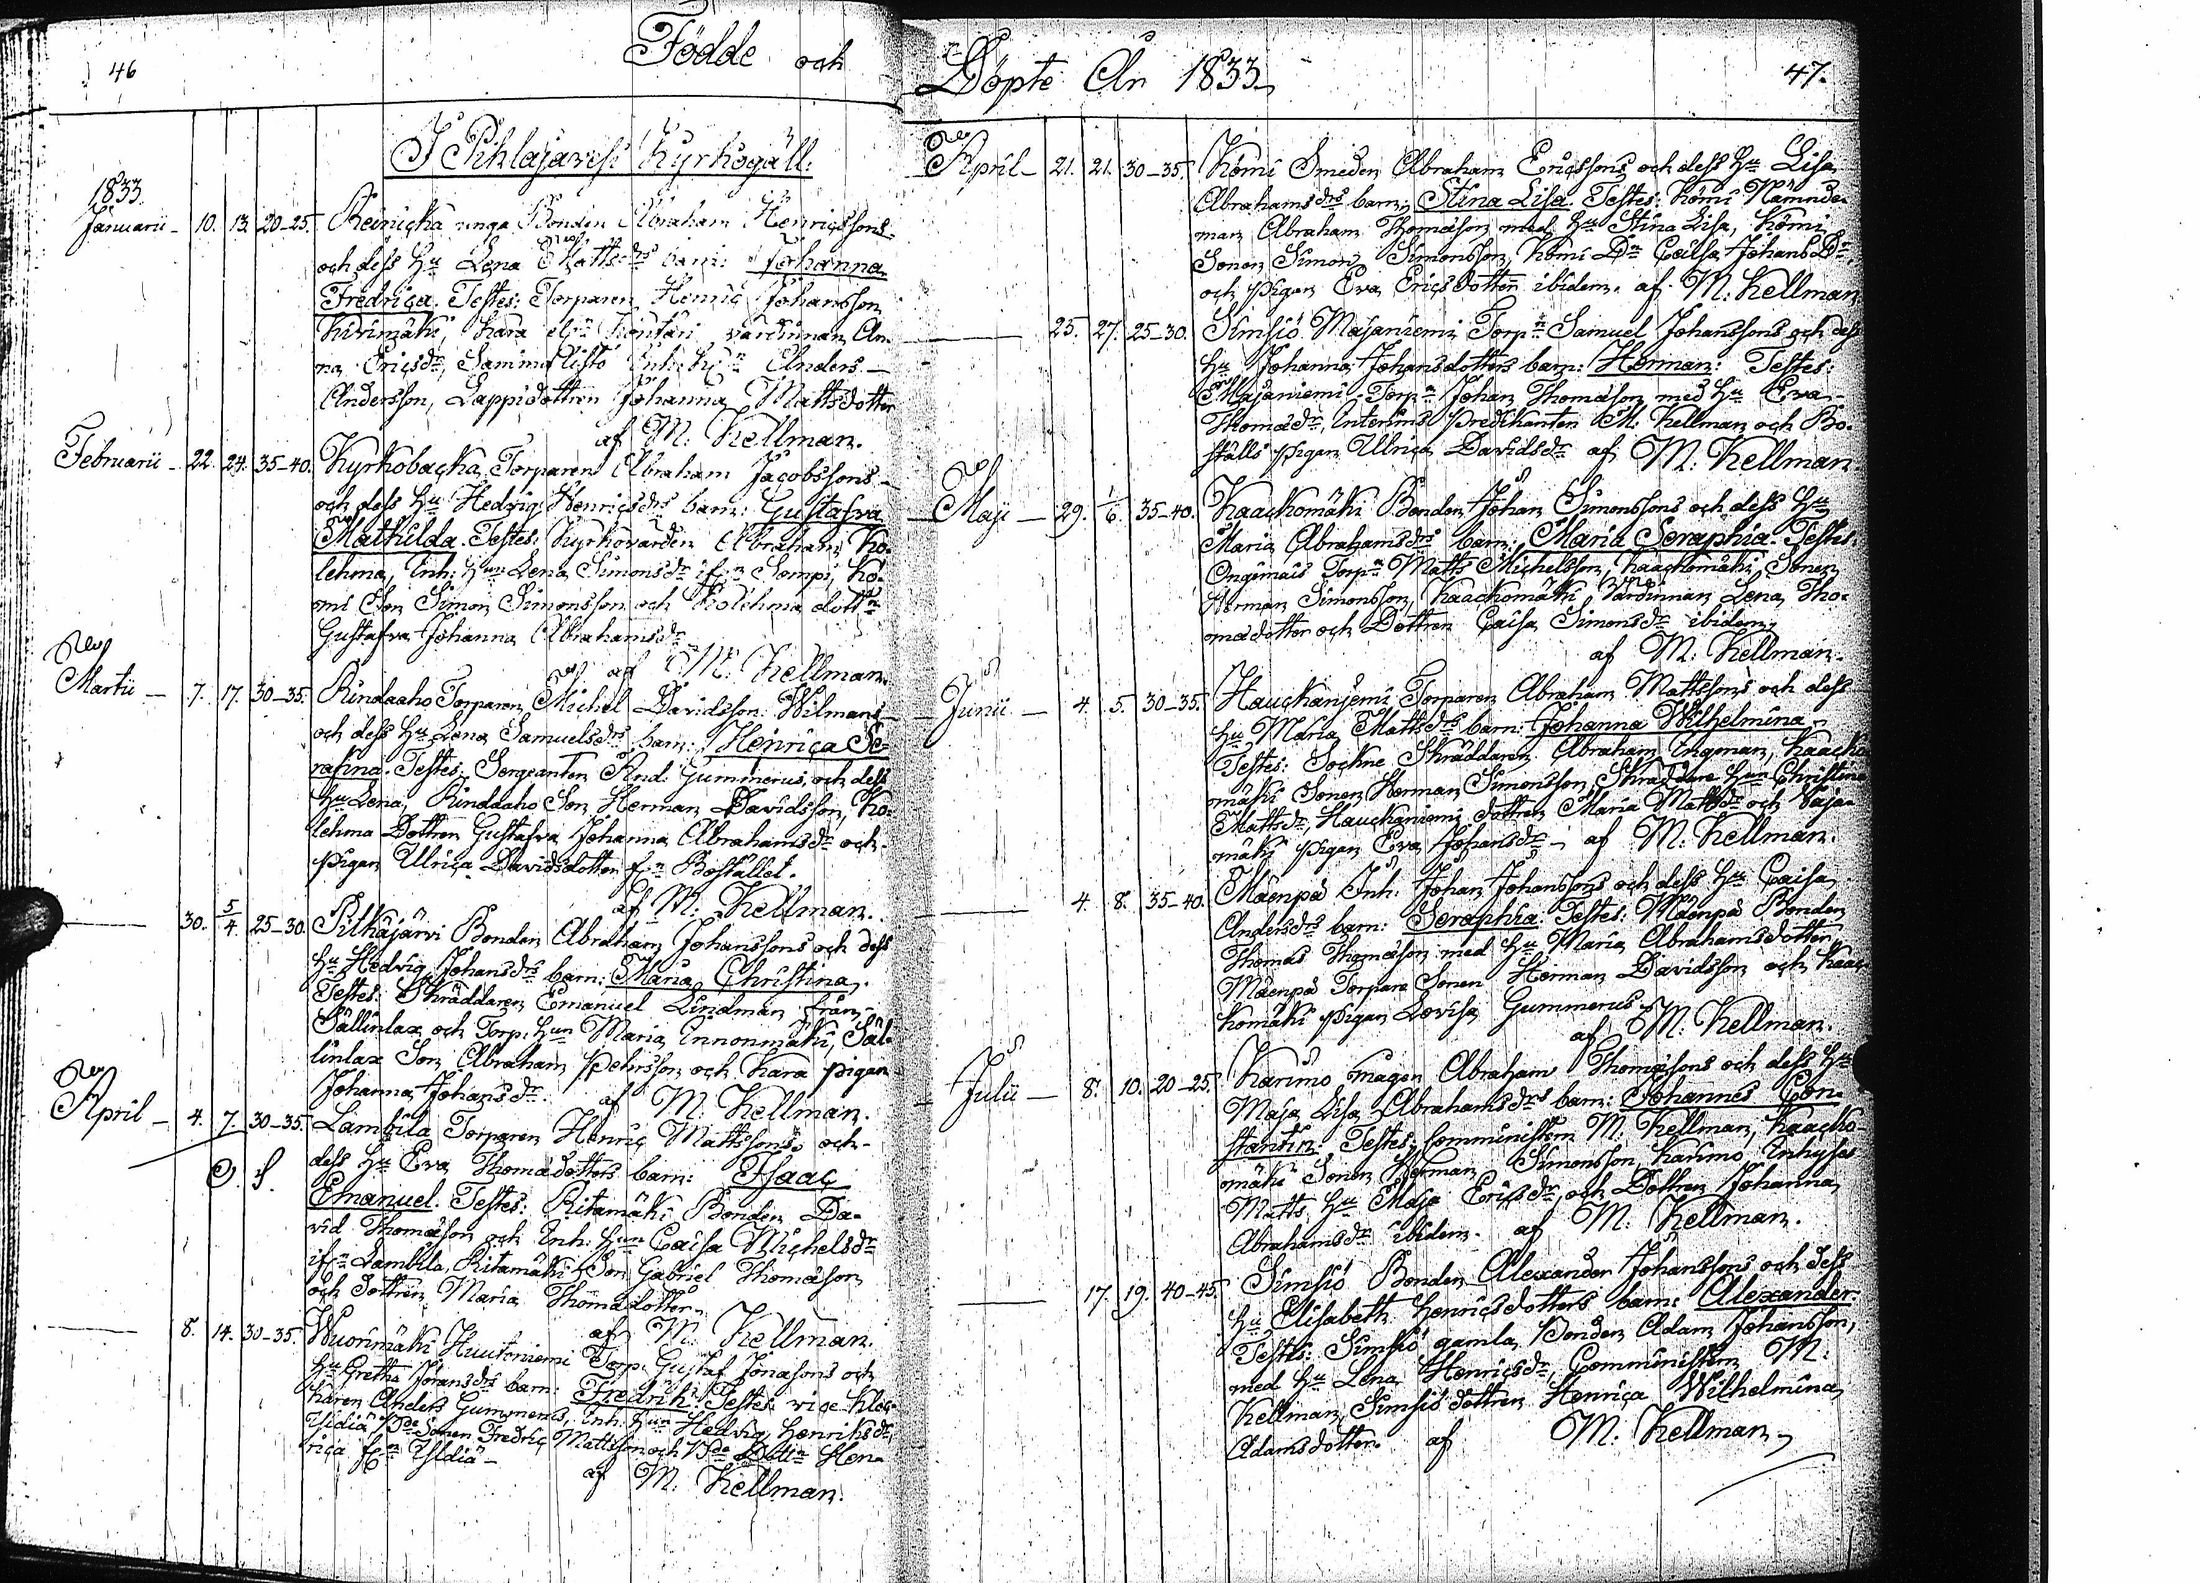 46
Födde och
I Pihlajavesi Kyrkogäll:
1833.
Januarii - 10. 13. 20-25. Reinicka unga Bonden Abraham Henricssons
och dess Hu Lena Mattsdrs barn: Johanna
Fredrica. Testes: Torparen Henric Johansson
Kivimäki, Kara värdinnan An-
na Ericsdr, Inh: Anders
Andersson, Lappi dottren Johanna Mattsdotter
af M. Kellman.
Februarii - 22. 24. 35-40. Kyrkobacka Torparen Abraham Jacobssons
och dess Hu Hedvig Henricsdrs barn: Gustafva
Mathilda. Testes: Kyrkovärden Abraham Ko-
lehma, Inh: Hun Lena Simonsdr ifrn Sempi, Kö-
mi Son Simon Simonsson och Kolehma dottrn
Gustafva Johanna Abrahamsdr
af M. Kellman.
Martii - 7. 17. 30-35. Rindaaho Torparen Michel Davidsson Wilmans
och dess Hu Lena Samuelsdrs barn: Henrica Se-
rafina. Testes: Sergeanten And: Gummerus och dess
Hu Lena, Rindaaho Son Herman Davidsson, Ko-
lehma Dottren Gustafva Johanna Abrahamsdr och
Pigan Ulrica Davidsdotter frn Bostället.
af M. Kellman.
30. 5/4 25-30. Pitkäjärvi Bonden Abraham Johanssons och dess
Hu Hedvig Johansdrs barn: Maria Christina.
Testes: Skräddaren Emanuel Lindman från
Sällinlax och Torp. Hun Maria Innonmäki, Säl-
linlax Son Abraham Petersson och Kara pigan
Johanna Johansdr. af M. Kellman.
April - 4. 7. 30-35. Lambila Torparen Henric Mattssons och
dess Hu Eva Thomasdotters barn: Isaac
Emanuel. Testes: Ritamäki Bonden Da-
vid Thomasson och Inh: Hun Caisa Michelsdr
ifrn Lambila, Ritamäki Son Gabriel Thomasson
och dottren Maria Thomasdotter
af M. Kellman.
8. 14. 30-35. Wuorimäki Huutoniemi Torp. Gustaf Jonassons och
Hu Gretha Göransdrs barn: Fredrik. Testes: vice Kloc-
karen Anders Gummerus, Inh: Hun Hedvig Henriksdr
Ylidiä, Bde Sonen Fredric Mattsson och Bde Dottrn Hen-
rica frn Ylidiä -
af M. Kellman.
Döpte År 1833
47.
April - 21. 21. 30-35. Kömi Smeden Abraham Ericssons och dess Hu Lisa
Abrahamsdrs barn: Stina Lisa. Testes: Kömi Nämnde-
man Abraham Thomasson med Hu Stina Lisa, Kömi
Sonen Simon Simonsson, Kömi Dn Caisa Johans Dr,
och Pigan Eva Ericsdotter ibidem. af M. Kellman
25. 27. 25-30. Simsiö Majaniemi Torpn Samuel Johanssons och dess
Hu Johanna Johansdotters barn: Herman: Testes:
Majaniemi Torpn Johan Thomasson med Hu Eva
Thomasdr, Interims Predikanten M. Kellman och Bo-
ställs Pigan Ulrica Davidsdr af M. Kellman
Maji - 29. 1/6. 35-40. Kaackomäki Bonden Johan Simonssons och dess Hu
Maria Abrahamsdrs barn: Maria Seraphia. Testes:
Torpn Matts Michelsson, Kaackomäki Sonen
Herman Simonsson, Kaackomäki Värdinnan Lena Tho-
masdotter och Dottren Caisa Simonsdr ibidem,
af M. Kellman.
Junii - 4. 5. 30-35. Hauckaniemi Torparen Abraham Mattssons och dess
Hu Maria Mattsdrs barn: Johanna Wilhelmina
Testes: Sockne Skräddaren Abraham Ingman, Kaacko-
mäki Sonen Herman Simonsson, Skräddare Hun Christina
Mattsdr, Hauckaniemi dottren Maria Mattsdr och Vaja-
mäki Pigan Eva Johansdr - af M. Kellman.
4. 8. 35-40. Mäenpä Inh: Johan Johanssons och dess Hu Caisa
Andersdrs barn: Seraphia. Testes: Mäenpä Bonden
Thomas Thomasson med Hu Maria Abrahamsdotter,
Mäenpä Torpare Sonen Herman Davidsson och Kaac-
komäki Pigan Lovisa Gummerus
af M. Kellman.
Julii - 8. 10. 20-25. Karimo mågen Abraham Thomassons och dess Hu
Maja Lisa Abrahamsdrs barn: Johannes Con-
stantin. Testes: Comministern M. Kellman, Kaacko-
mäki Sonen Herman Simonsson, Karimo Inhyses
Matts Hu Maja Ericsdr och Dottren Johanna
Abrahamsdr ibidem. af M. Kellman.
17. 19. 40-45. Simsiö Bonden Alexander Johanssons och dess
Hu Elisabeth Henricsdotters barn: Alexander.
Testes: Simsiö gamla Bonden Adam Johansson,
med Hu Lena Henricsdr, Comministern M:
Kellman, Simsiö dottren Henrica Wilhelmina
Adamsdotter. af M. Kellman